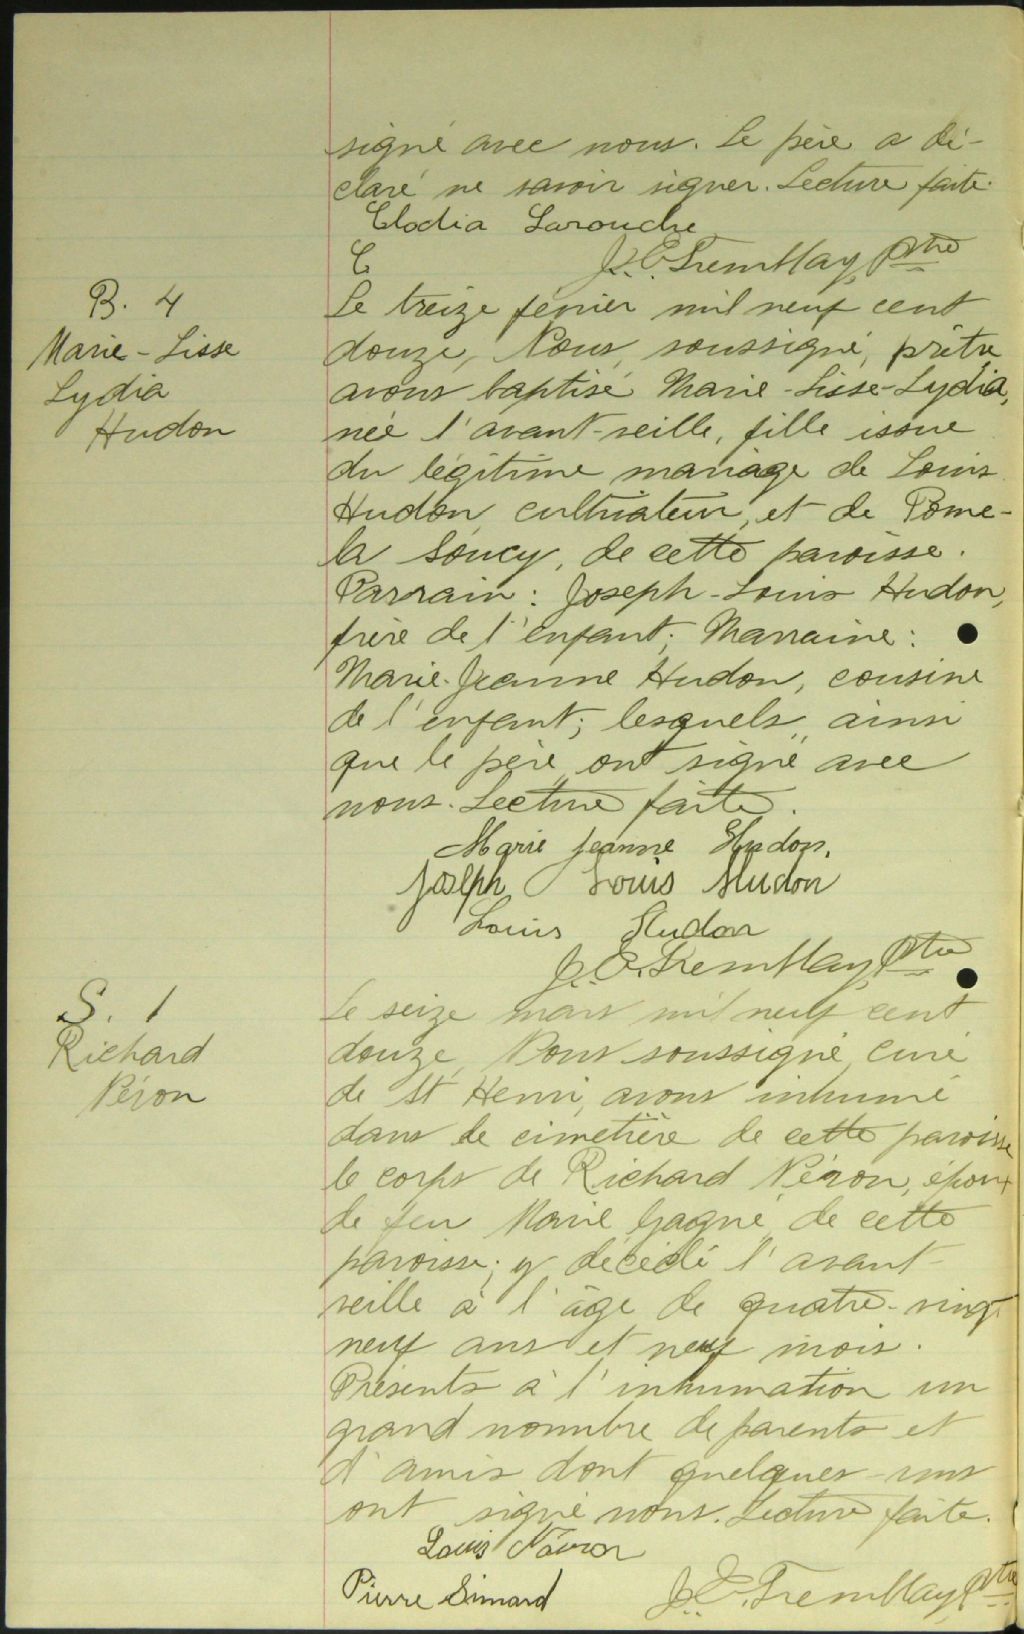 signé avec nous. Le père a dé-
claré ne savoir signer. Lecture faite.
Elodia Larouche
J. E. Tremblay, Ptre
B. 4
Marie-Lisse
Lydia
Hudon
Le treize février mil neuf cent
douze, Nous, soussigné, prêtre
avons baptisé Marie-Lisse-Lydia,
née l'avant-veille, fille issue
du légitime mariage de Louis
Hudon, cultivateur, et de Pome-
la Soucy, de cette paroisse.
Parrain: Joseph-Louis Hudon,
frère de l'enfant; Marraine:
Marie-Jeanne Hudon, cousine
de l'enfant; lesquels, ainsi
que le père, ont signé avec
nous. Lecture faite.
Marie Jeanne Hudon.
Joseph Louis Hudon
Louis Hudon
J. E. Tremblay, Ptre
S. 1
Richard
Néron
Le seize mars mil neuf cent
douze, Nous soussigné, curé
de St Henri, avons inhumé
dans le cimetière de cette paroisse
le corps de Richard Néron, époux
de feu Marie Gagné, de cette
paroisse; y décédé l'avant-
veille à l'âge de quatre-vingt
neuf ans et neuf mois.
Présents à l'inhumation un
grand nombre de parents et
d'amis dont quelques-uns
ont signé nous. Lecture faite.
Louis Néron
Pierre Simard
J. E. Tremblay, Ptre